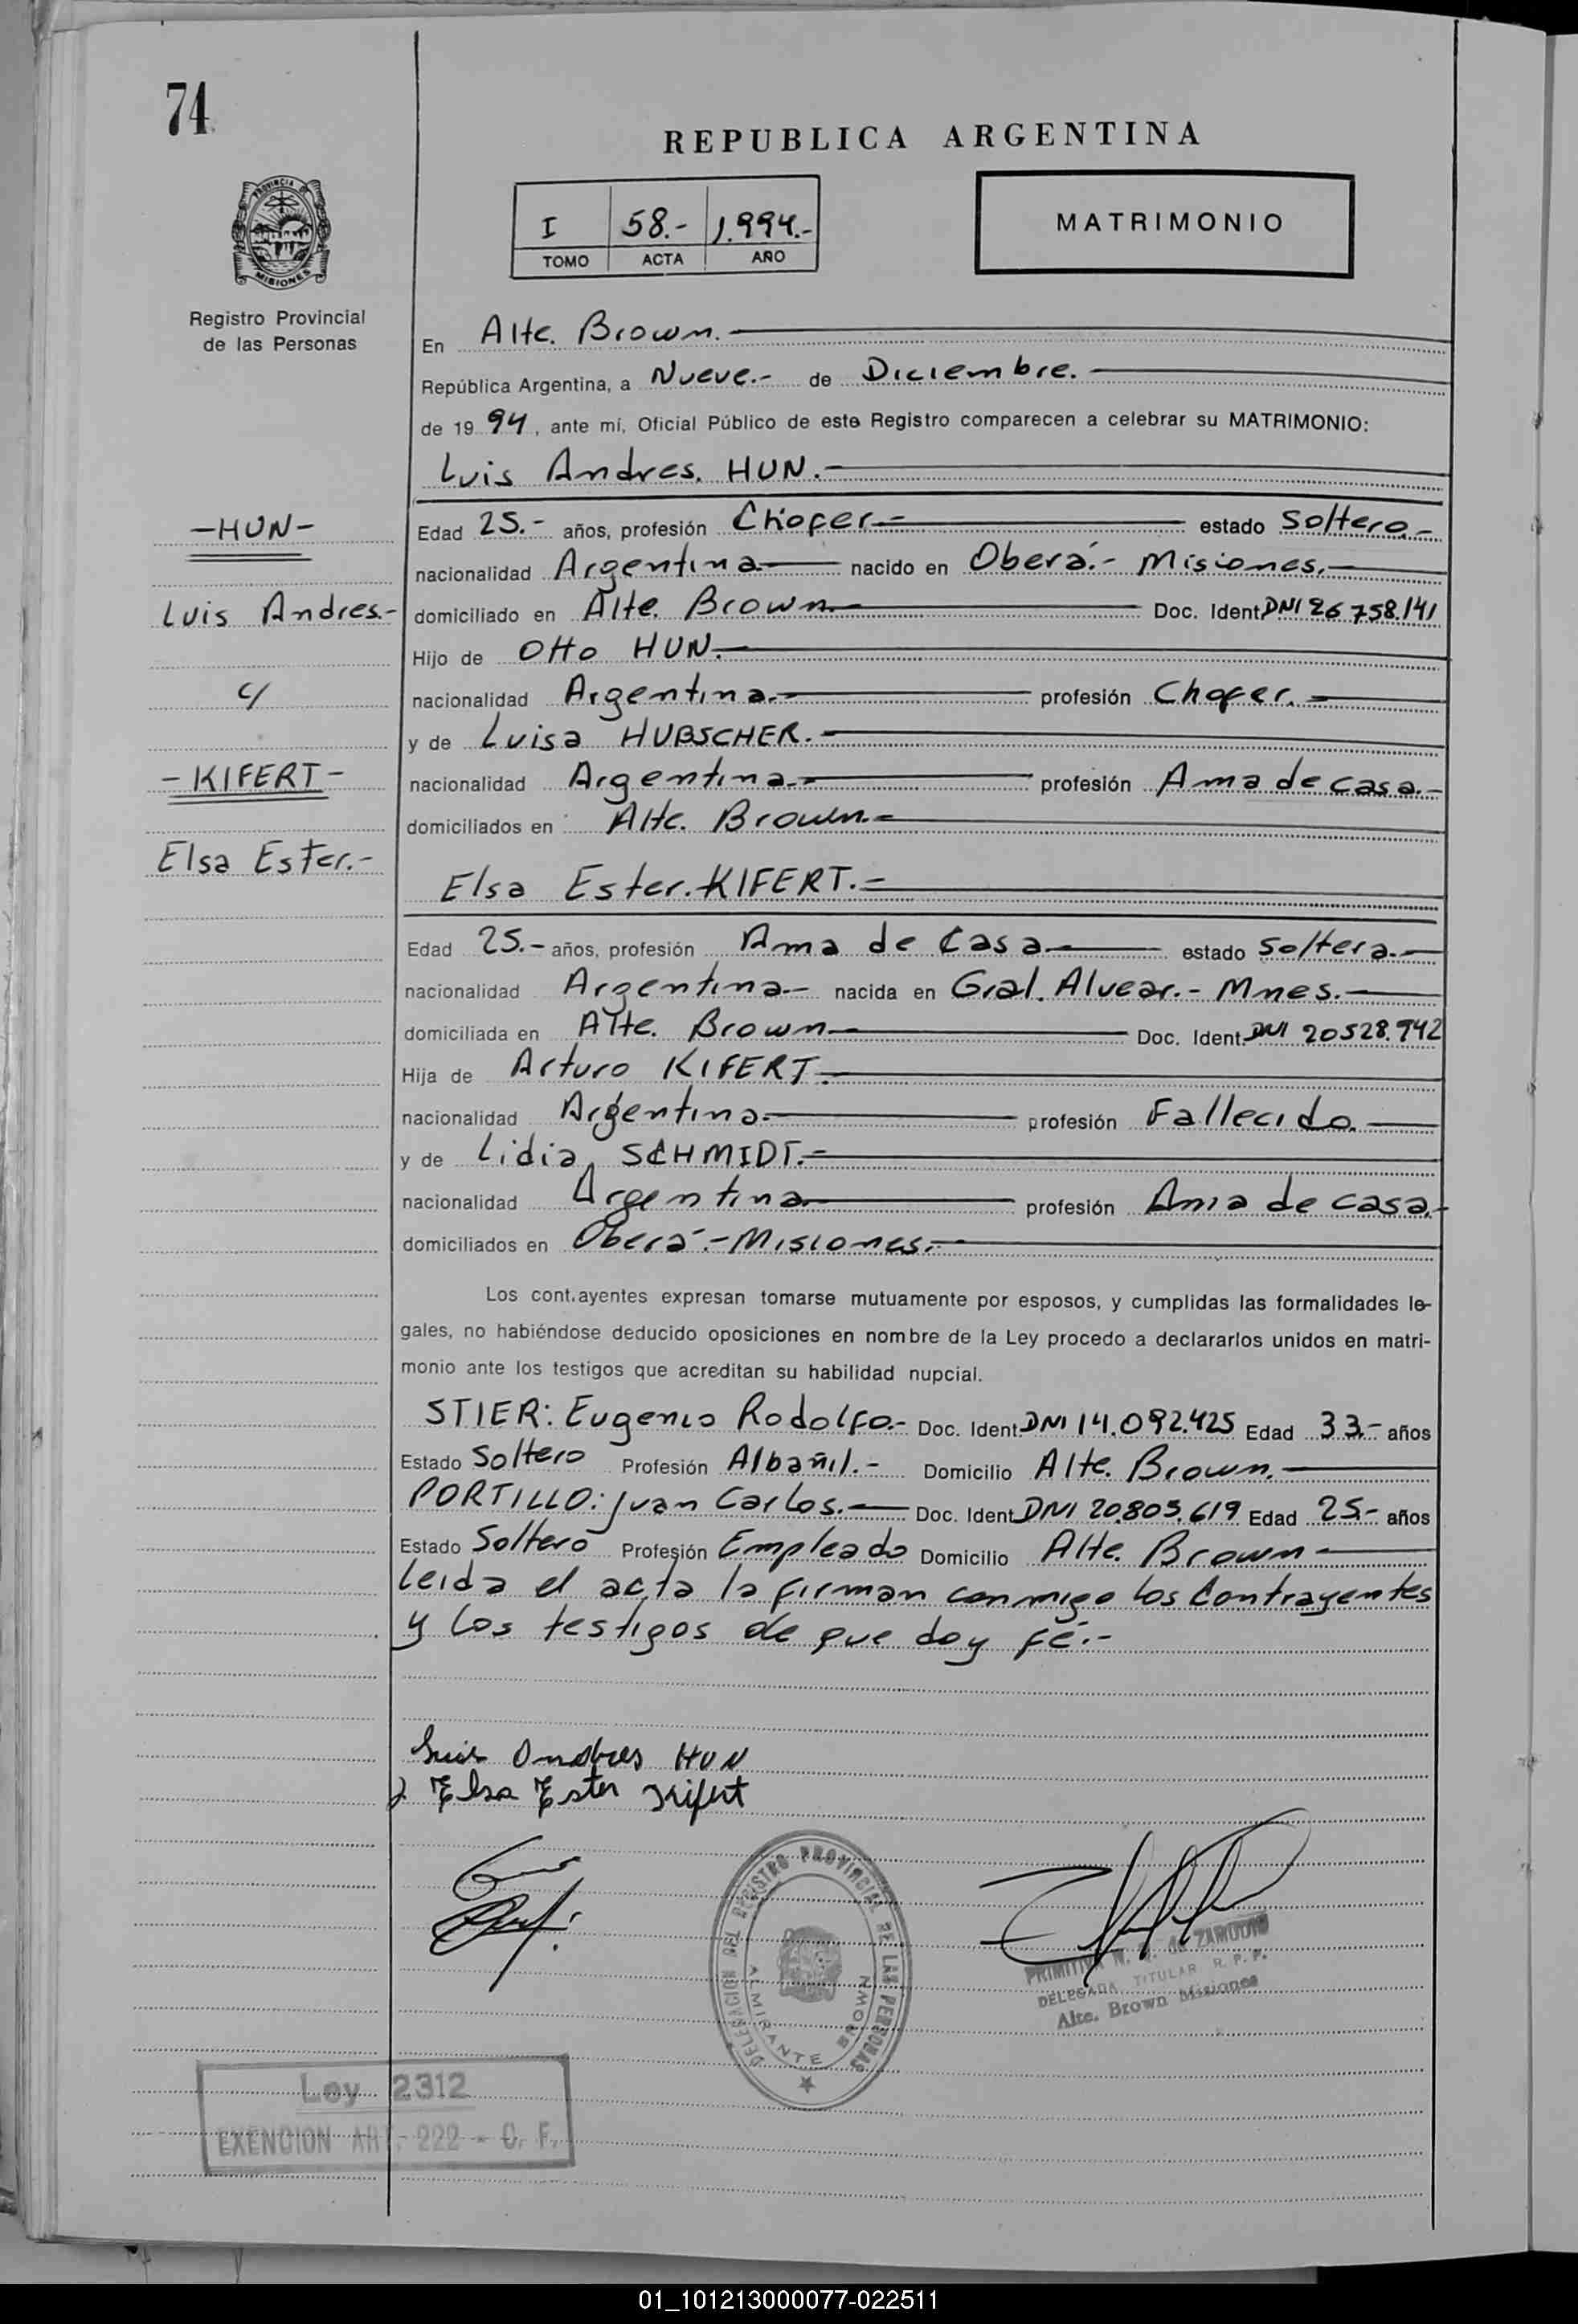 74
REPUBLICA ARGENTINA
I 58.- 1.994.-
TOMO ACTA AÑO
MATRIMONIO
PROVINCIA DE
MISIONES
Registro Provincial
de las Personas
En Alte. Brown.
República Argentina, a Nueve.- de Diciembre.
de 19 94, ante mí, Oficial Público de este Registro comparecen a celebrar su MATRIMONIO:
Luis Andres. HUN.-
-HUN-
Edad 25.- años, profesión Chofer.- estado Soltero.-
nacionalidad Argentina nacido en Oberá.- Misiones.-
Luis Andres.-
domiciliado en Alte. Brown.- Doc. Ident. DNI 26.758.141
Hijo de Otto HUN.-
c/
nacionalidad Argentina.- profesión Chofer.-
y de Luisa HUBSCHER.-
-KIFERT-
nacionalidad Argentina.- profesión Ama de casa.-
domiciliados en Alte. Brown.-
Elsa Ester.-
Elsa Ester. KIFERT.-
Edad 25.- años, profesión Ama de Casa estado Soltera.-
nacionalidad Argentina.- nacida en Gral. Alvear.- Mnes.-
domiciliada en Alte. Brown Doc. Ident. DNI 20528.942
Hija de Arturo KIFERT.-
nacionalidad Argentina.- profesión Fallecido.
y de Lidia SCHMIDT.-
nacionalidad Argentina profesión Ama de casa.-
domiciliados en Oberá.- Misiones.-
Los cont.ayentes expresan tomarse mutuamente por esposos, y cumplidas las formalidades le-
gales, no habiéndose deducido oposiciones en nombre de la Ley procedo a declararlos unidos en matri-
monio ante los testigos que acreditan su habilidad nupcial.
STIER: Eugenio Rodolfo.- Doc. Ident. DNI 14.092.425 Edad 33.- años
Estado Soltero Profesión Albañil.- Domicilio Alte. Brown.
PORTILLO: Juan Carlos.- Doc. Ident. DNI 20.805.619 Edad 25.- años
Estado Soltero Profesión Empleado Domicilio Alte. Brown
Leida el acta la firman conmigo los Contrayentes
y los testigos de que doy fé.-
Luis Andres HUN
Elsa Ester Kifert
DELEGACION DEL REGISTRO PROVINCIAL DE LAS PERSONAS
ALMIRANTE BROWN
PRIMITIVA de ZARUDIN
DELEGADA TITULAR R. P. P.
Alte. Brown Misiones
Ley 2312
EXENCION ART. 222 - C. F.
01_101213000077-022511